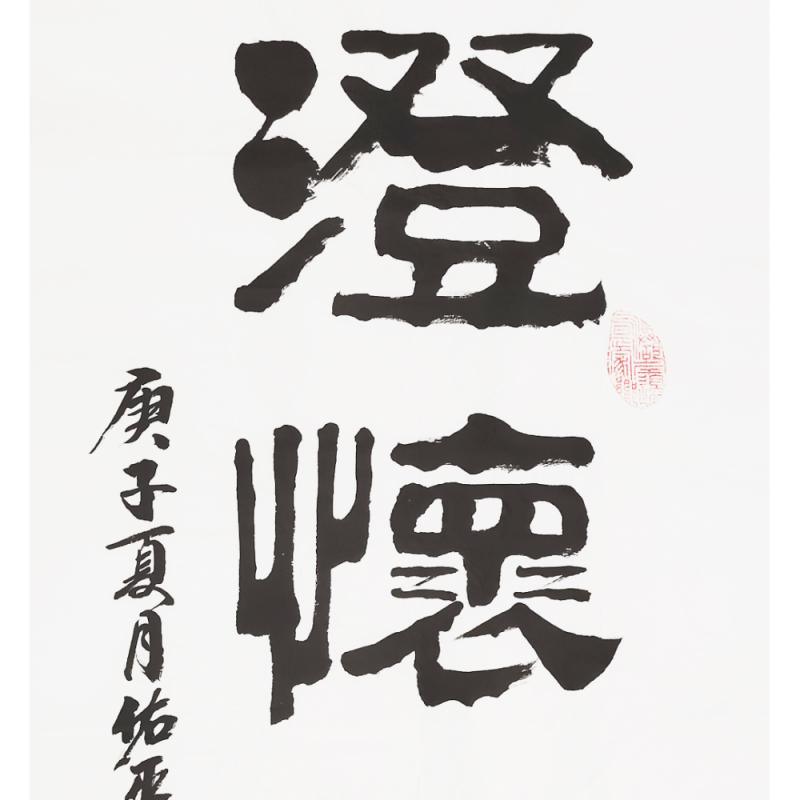 澄懷
庚子夏月佑